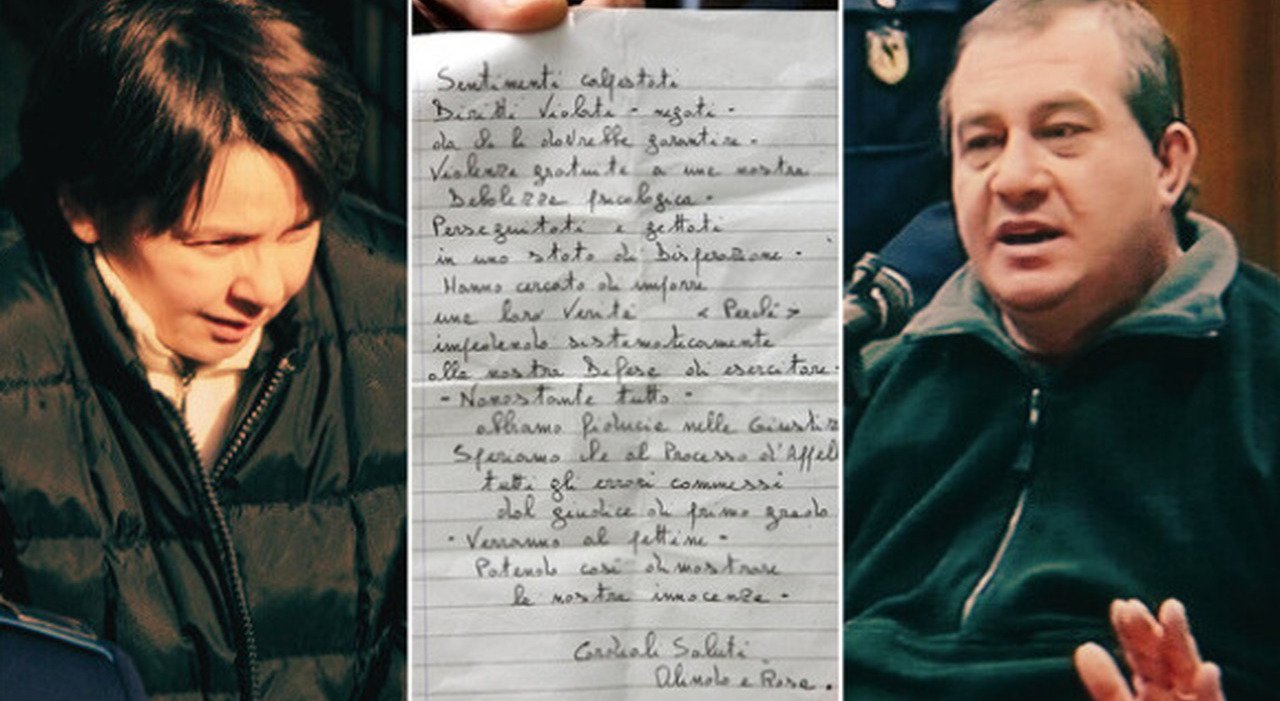 Sentimenti calpestati
Diritti Violati - negati -
da chi li dovrebbe garantire -
Violenze gratuite a una nostra
Debolezza psicologica -
Perseguitati e gettati
in uno stato di Disperazione -
Hanno cercato di imporre
una loro Verità « Perché »
impedendo sistematicamente
alla nostra Difesa di esercitare -
- Nonostante tutto -
abbiamo fiducia nella Giustiz
Speriamo che al Processo d'Appel
tutti gli errori commessi
dal giudice di primo grado
- Verranno al pettine -
Potendo così dimostrare
la nostra innocenza -
Cordiali Saluti
Olindo e Rosa .